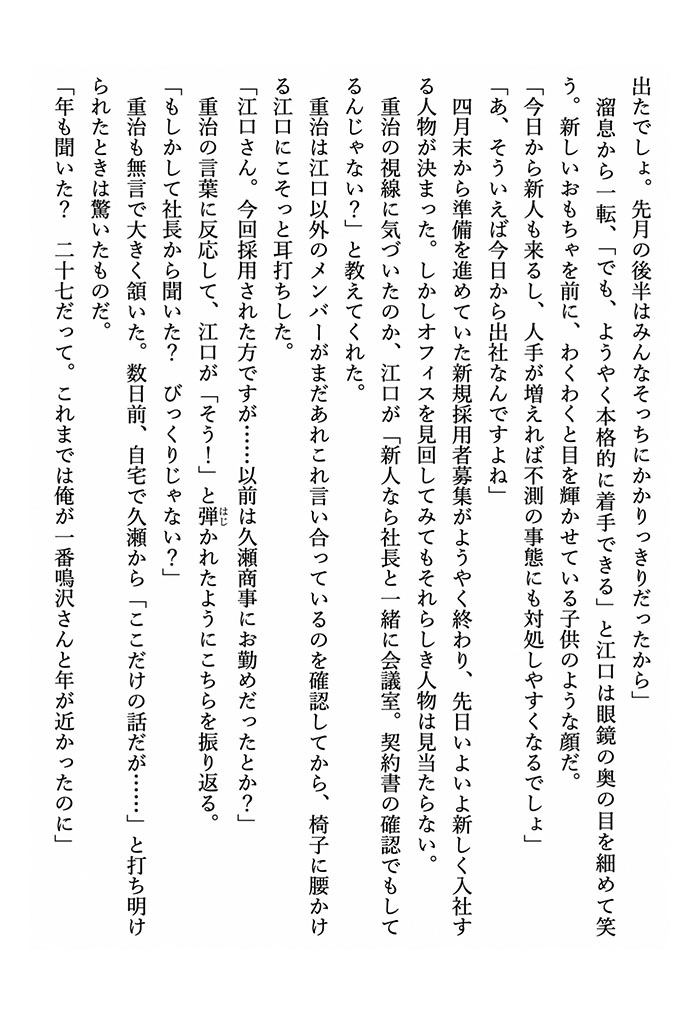 出たでしょ。先月の後半はみんなそっちにかかりっきりだったから」
　溜息から一転、「でも、ようやく本格的に着手できる」と江口は眼鏡の奥の目を細めて笑
う。新しいおもちゃを前に、わくわくと目を輝かせている子供のような顔だ。
「今日から新人も来るし、人手が増えれば不測の事態にも対処しやすくなるでしょ」
「あ、そういえば今日から出社なんですよね」
　四月末から準備を進めていた新規採用者募集がようやく終わり、先日いよいよ新しく入社す
る人物が決まった。しかしオフィスを見回してみてもそれらしき人物は見当たらない。
　重治の視線に気づいたのか、江口が「新人なら社長と一緒に会議室。契約書の確認でもして
るんじゃない？」と教えてくれた。
　重治は江口以外のメンバーがまだあれこれ言い合っているのを確認してから、椅子に腰かけ
る江口にこそっと耳打ちした。
「江口さん。今回採用された方ですが……以前は久瀬商事にお勤めだったとか？」
　重治の言葉に反応して、江口が「そう！」と弾かれたようにこちらを振り返る。
はじ
「もしかして社長から聞いた？　びっくりじゃない？」
　重治も無言で大きく頷いた。数日前、自宅で久瀬から「ここだけの話だが……」と打ち明け
られたときは驚いたものだ。
「年も聞いた？　二十七だって。これまでは俺が一番鳴沢さんと年が近かったのに」